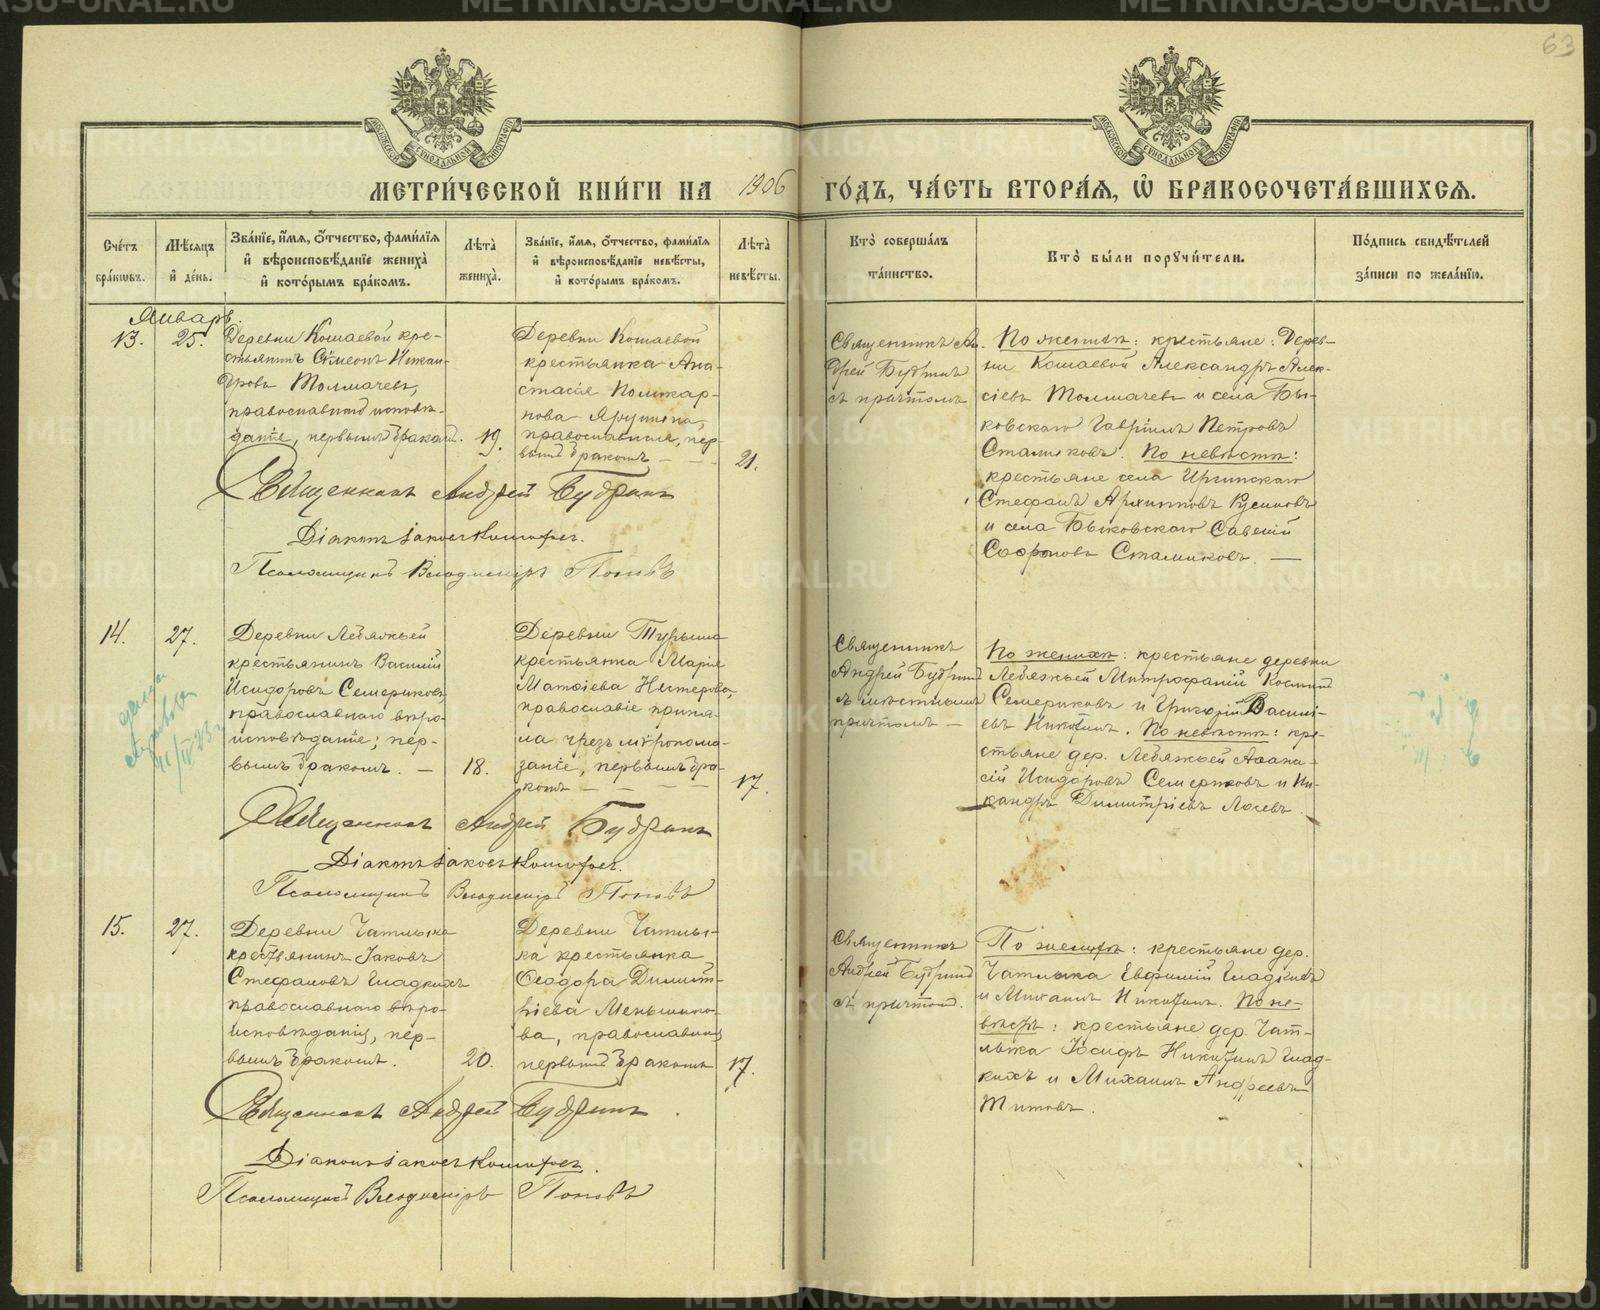 63
МЕТРИ́ЧЕСКОЙ КНИ́ГИ НА 1906 ГО́ДЪ, ЧА́СТЬ ВТОРА́Я, Ѡ БРАКОСОЧЕТА́ВШИХСЯ.
Сче́тъ бра́кѡвъ.
Мѣ́сяцъ и҆ де́нь.
Зва́нїе, и҆́мя, ѻ҆́тчество, фами́лїя и҆ вѣроисповѣ́данїе жениха̀ и҆ кото́рымъ бра́комъ.
Лѣ́та жениха̀.
Зва́нїе, и҆́мя, ѻ҆́тчество, фами́лїя и҆ вѣроисповѣ́данїе невѣ́сты, и҆ кото́рымъ бра́комъ.
Лѣ́та невѣ́сты.
Кто̀ соверша́лъ та́инство.
Кто̀ бы́ли порꙋчи́тели.
По́дпись свидѣ́телей за́писи по жела́нїю.
Январь.
13.
25.
Деревни Кошаевой кре-
стьянинъ Симеонъ Никан-
дровъ Толмачевъ,
православнаго исповѣ-
данія, первымъ бракомъ.
19.
Деревни Кошаевой
крестьянка Ана-
стасія Поликар-
пова Ярушина,
православная, пер-
вымъ бракомъ
21.
Священникъ Ан-
дрей Будринъ
съ причтомъ
По женихѣ: крестьяне: Дерев-
ни Кошаевой Александръ Алек-
сіевъ Толмачевъ и села Бы-
ковскаго Гавріилъ Петровъ
Стамиковъ. По невѣстѣ:
крестьяне села Иргинскаго
Стефанъ Архиповъ Русиновъ
и села Быковскаго Савелій
Софроновъ Стамиковъ.
Священникъ Андрей Будринъ
Діаконъ Іаковъ
Псаломщикъ Владиміръ Поповъ
14.
27.
Деревни Лебяжьей
крестьянинъ Василій
Исидоровъ Семериковъ,
православнаго вѣро-
исповѣданія; пер-
вымъ бракомъ.
18.
Деревни Турыша
крестьянка Марія
Матѳіева Нестерова,
православіе приня-
ла чрезъ мѵропома-
заніе, первымъ бра-
комъ
17.
Священникъ
Андрей Будринъ
съ мѣстнымъ
причтомъ
По женихѣ: крестьяне деревни
Лебяжьей Митрофаній Косминъ
Семериковъ и Григорій Василі-
евъ Никитинъ. По невѣстѣ: кре-
стьяне дер. Лебяжьей Аѳана-
сій Исидоровъ Семериковъ и Ни-
кандръ Димитріевъ Лосевъ
Священникъ Андрей Будринъ
Діаконъ Іаковъ
Псаломщикъ Владиміръ Поповъ
15.
27.
Деревни Чатлыка
крестьянинъ Іаковъ
Стефановъ Гладкихъ
православнаго вѣро-
исповѣданія, пер-
вымъ бракомъ.
20.
Деревни Чатлы-
ка крестьянка
Ѳеодора Димит-
ріева Меньшико-
ва, православная
первымъ бракомъ
17.
Священникъ
Андрей Будринъ
съ причтомъ.
По женихѣ: крестьяне дер.
Чатлыка Евфимій Гладкихъ
и Михаилъ Никитинъ. По не-
вѣстѣ: крестьяне дер. Чат-
лыка Іосифъ Никитинъ Глад-
кихъ и Михаилъ Андреевъ
Титовъ.
Священникъ Андрей Будринъ.
Діаконъ Іаковъ
Псаломщикъ Владиміръ Поповъ
METRIKI.GASO-URAL.RU